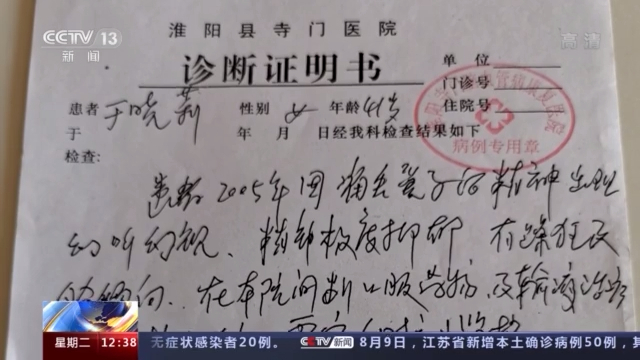 CCTV 13
新闻
高清
淮阳县寺门医院
诊断证明书
单位
门诊号
住院号
患者 于晓莉 性别 女 年龄 41岁
于 年 月 日经我科检查结果如下
检查:
病例专用章
患者2005年因痛失爱子后精神出现
幻听幻视、精神极度抑郁 有躁狂及
倾向. 在本院间断口服药物及输液治疗
星期二 12:38 无症状感染者20例。 CCTV新闻 8月9日,江苏省新增本土确诊病例50例,